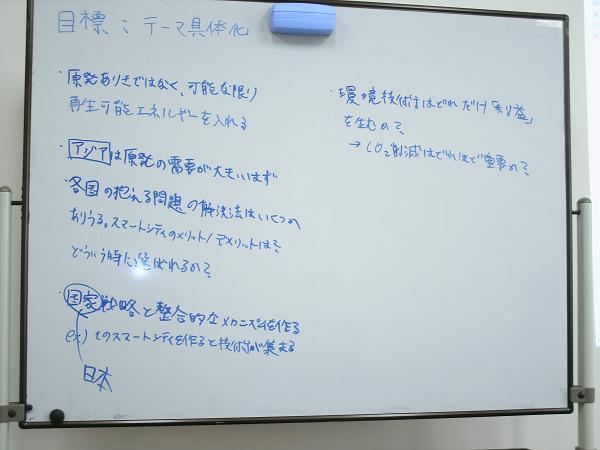 目標：テーマ具体化
・原発ありきではなく、可能な限り
再生可能エネルギーを入れる
・アジアは原発の需要が大きいはず
・各国の抱える問題の解決法はいくつか
ありうる。スマートシティのメリット/デメリットは？
どういう時に選ばれるか？
・国家戦略と整合的なメカニズムを作る
ex) スマートシティを作ると技術が集まる
日本
・環境技術はどれだけ「利益」
を生むの？
→ CO2削減はどれほど重要か？